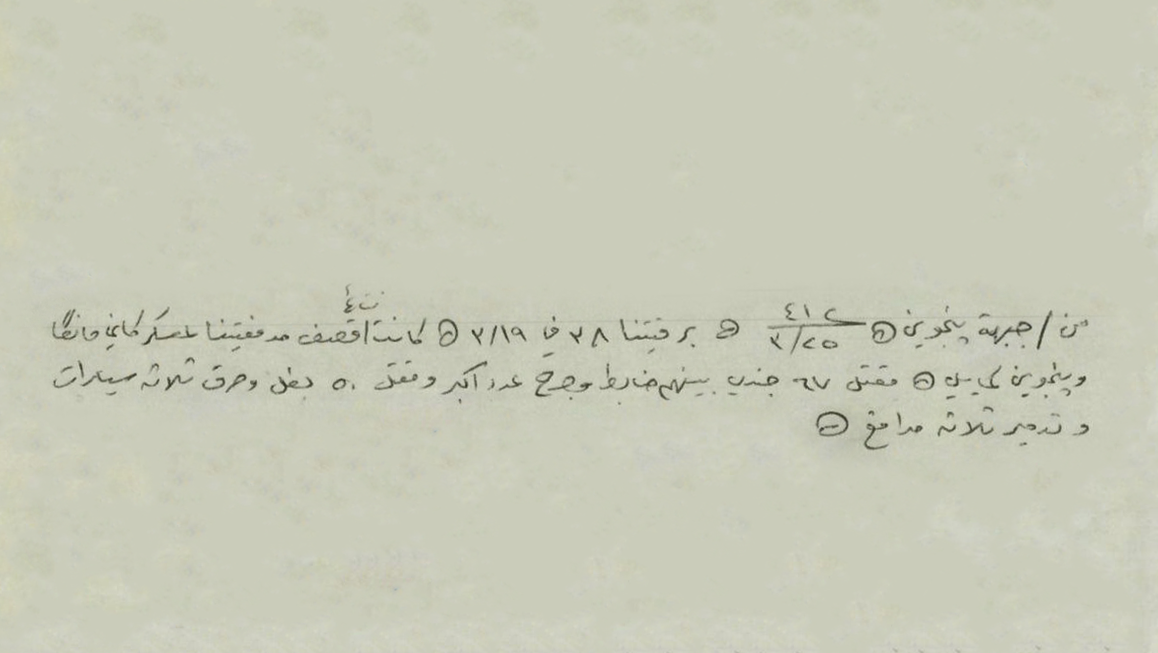 نتائج
من / جبهة پنجوين ⊝ ٤١٢ ٣/٢٥ ⊝ برقيتنا ٣٨ في ٣/١٩ ⊝ كانت قصف مدفعيتنا لمعسكر كاني مانگا
وپنجوين كما يلي ⊝ مقتل ٦٧ جندي بينهم ضابط وجرح عدد اكبر ومقتل ٥٠ بغل وحرق ثلاثة سيارات
و تدمير ثلاثة مدافع ⊝